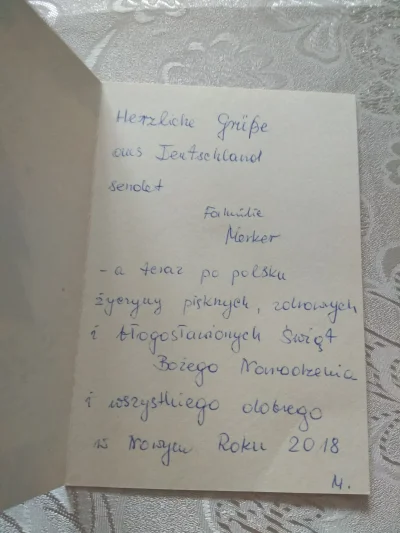 Herzliche Grüße
aus Deutschland
sendet
Familie
Merker
- a teraz po polsku
życzymy pięknych, zdrowych
i błogosławionych Świąt
Bożego Narodzenia
i wszystkiego dobrego
w Nowym Roku 2018
M.